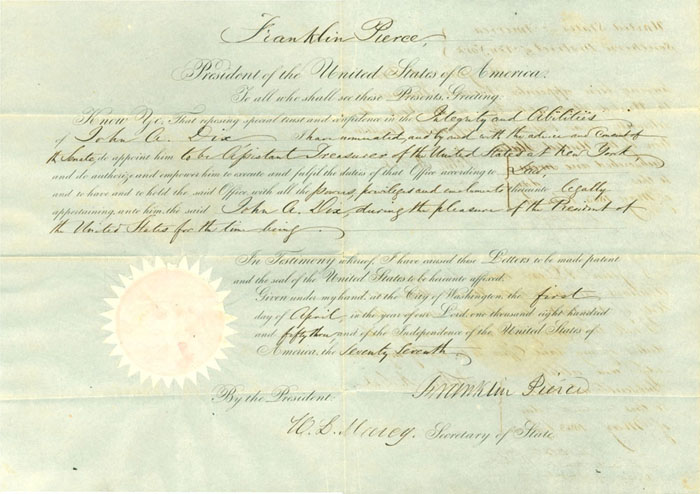 Franklin Pierce,
President of the United States of America.
To all who shall see these Presents, Greeting.
Know Ye, That reposing special trust and confidence in the Integrity and Abilities
of John A. Dix I have nominated, and by and with the advice and Consent of
the Senate, do appoint him to be Assistant Treasurer of the United States at New York
and do authorize and empower him to execute and fulfil the duties of that Office according to Law
and to have and to hold the said Office, with all the powers, privileges and emoluments thereunto legally
appertaining, unto him, the said John A. Dix, during the pleasure of the President of
the United States for the time being.
In Testimony whereof, I have caused these Letters to be made patent
and the seal of the United States to be hereunto affixed.
Given under my hand, at the City of Washington, the first
day of April, in the year of our Lord one thousand eight hundred
and fifty three and of the Independence of the United States of
America, the Seventy Seventh
Franklin Pierce
By the President.
W. L. Marcy. Secretary of State